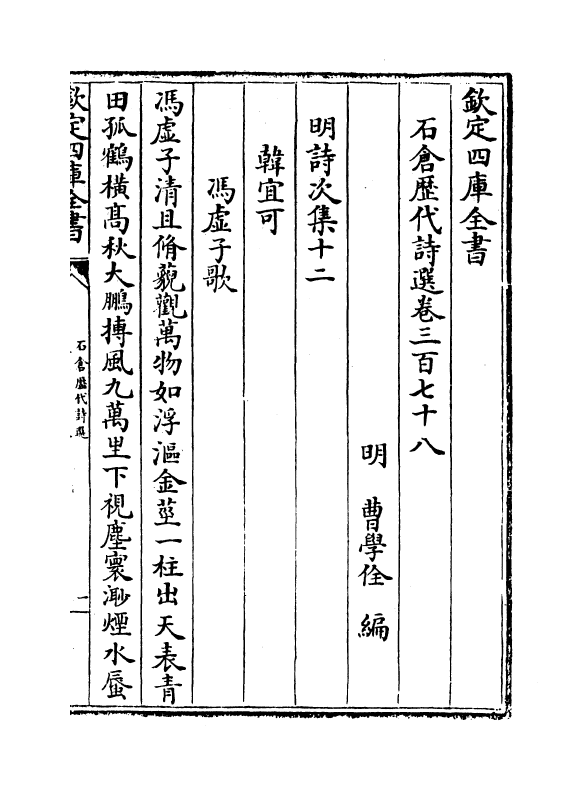 欽定四庫全書
石倉歷代詩選卷三百七十八
明　曹學佺　編
明詩次集十二
韓宜可
馮虛子歌
馮虛子清且脩藐觀萬物如浮漚金莖一柱出天表青
田孤鶴橫髙秋大鵬摶風九萬里下視塵寰渺煙水蜃
欽定四庫全書
石倉歷代詩選
一